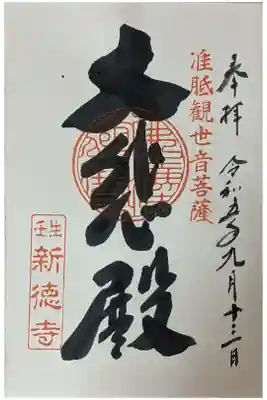 奉拝 令和五年九月十三日
准胝観世音菩薩
大悲殿
壬生
新徳寺